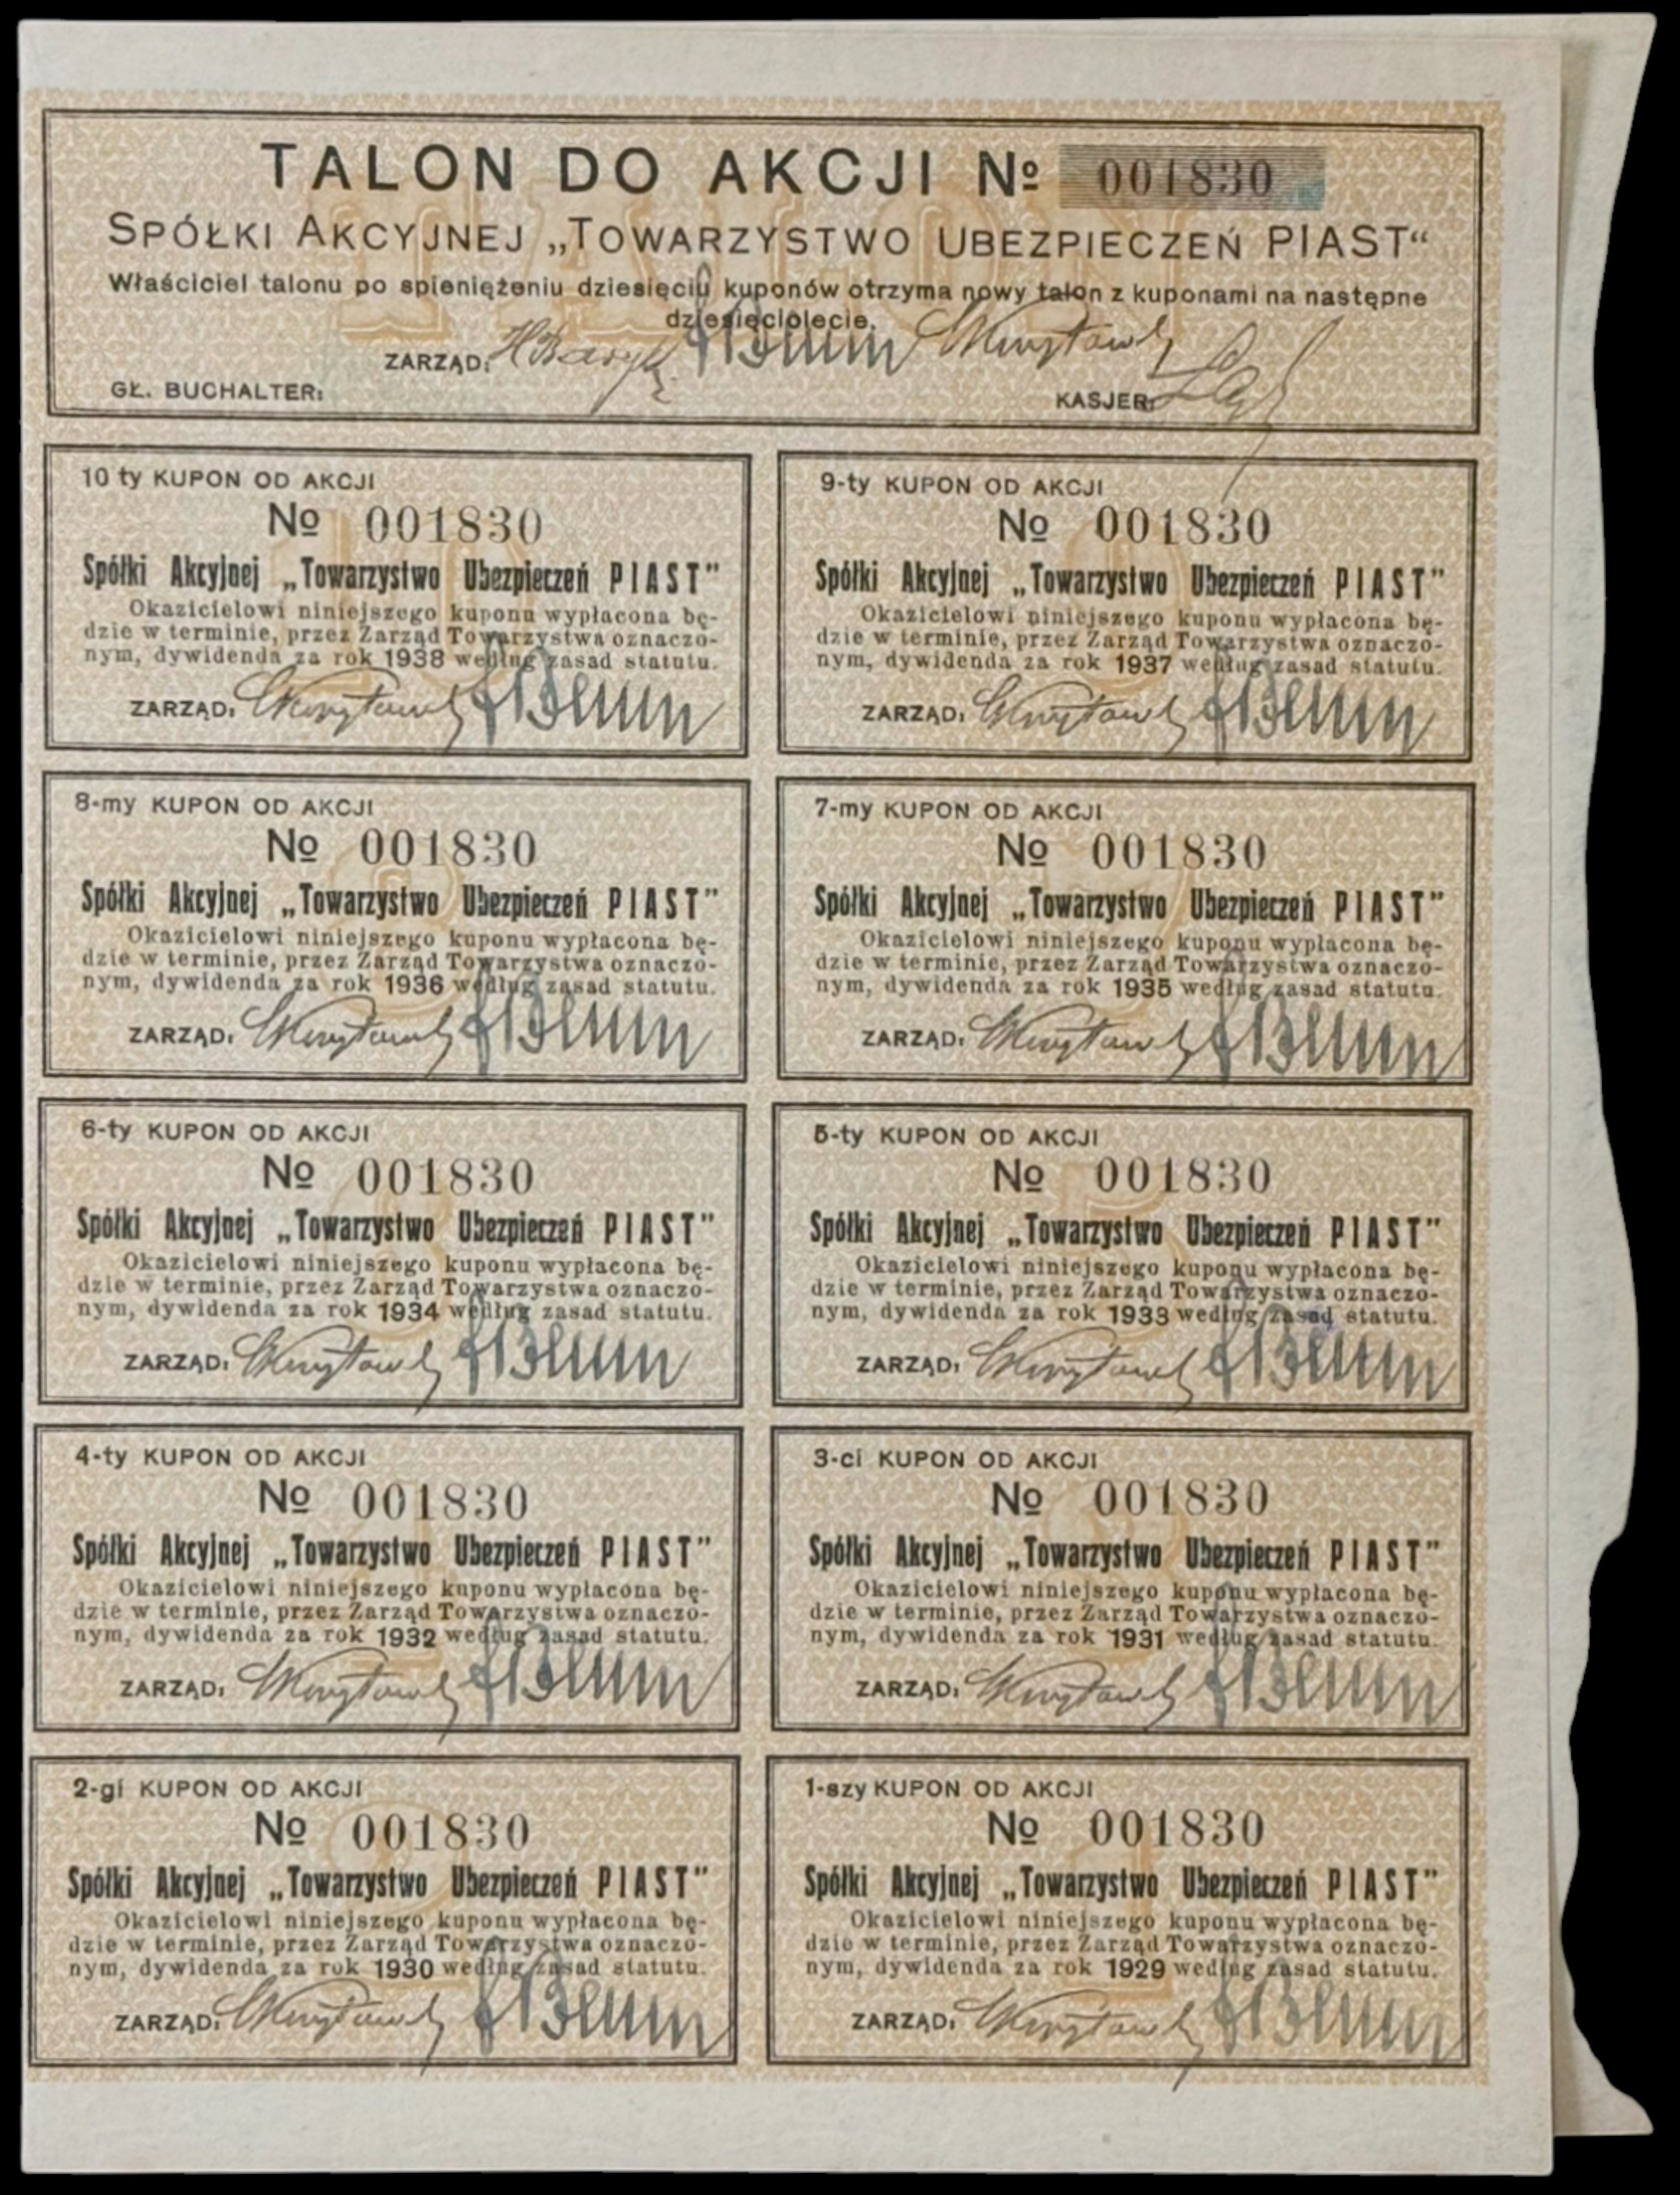 TALON DO AKCJI № 001830
SPÓŁKI AKCYJNEJ „TOWARZYSTWO UBEZPIECZEŃ PIAST“
Właściciel talonu po spieniężeniu dziesięciu kuponów otrzyma nowy talon z kuponami na następne
dziesięciolecie.
ZARZĄD:
GŁ. BUCHALTER:
KASJER:
10 ty KUPON OD AKCJI
№ 001830
Spółki Akcyjnej „Towarzystwo Ubezpieczeń PIAST"
Okazicielowi niniejszego kuponu wypłacona bę-
dzie w terminie, przez Zarząd Towarzystwa oznaczo-
nym, dywidenda za rok 1938 według zasad statutu.
ZARZĄD:
9-ty KUPON OD AKCJI
№ 001830
Spółki Akcyjnej „Towarzystwo Ubezpieczeń PIAST"
Okazicielowi niniejszego kuponu wypłacona bę-
dzie w terminie, przez Zarząd Towarzystwa oznaczo-
nym, dywidenda za rok 1937 według zasad statutu.
ZARZĄD:
8-my KUPON OD AKCJI
№ 001830
Spółki Akcyjnej „Towarzystwo Ubezpieczeń PIAST"
Okazicielowi niniejszego kuponu wypłacona bę-
dzie w terminie, przez Zarząd Towarzystwa oznaczo-
nym, dywidenda za rok 1936 według zasad statutu.
ZARZĄD:
7-my KUPON OD AKCJI
№ 001830
Spółki Akcyjnej „Towarzystwo Ubezpieczeń PIAST"
Okazicielowi niniejszego kuponu wypłacona bę-
dzie w terminie, przez Zarząd Towarzystwa oznaczo-
nym, dywidenda za rok 1935 według zasad statutu.
ZARZĄD:
6-ty KUPON OD AKCJI
№ 001830
Spółki Akcyjnej „Towarzystwo Ubezpieczeń PIAST"
Okazicielowi niniejszego kuponu wypłacona bę-
dzie w terminie, przez Zarząd Towarzystwa oznaczo-
nym, dywidenda za rok 1934 według zasad statutu.
ZARZĄD:
5-ty KUPON OD AKCJI
№ 001830
Spółki Akcyjnej „Towarzystwo Ubezpieczeń PIAST"
Okazicielowi niniejszego kuponu wypłacona bę-
dzie w terminie, przez Zarząd Towarzystwa oznaczo-
nym, dywidenda za rok 1933 według zasad statutu.
ZARZĄD:
4-ty KUPON OD AKCJI
№ 001830
Spółki Akcyjnej „Towarzystwo Ubezpieczeń PIAST"
Okazicielowi niniejszego kuponu wypłacona bę-
dzie w terminie, przez Zarząd Towarzystwa oznaczo-
nym, dywidenda za rok 1932 według zasad statutu.
ZARZĄD:
3-ci KUPON OD AKCJI
№ 001830
Spółki Akcyjnej „Towarzystwo Ubezpieczeń PIAST"
Okazicielowi niniejszego kuponu wypłacona bę-
dzie w terminie, przez Zarząd Towarzystwa oznaczo-
nym, dywidenda za rok 1931 według zasad statutu.
ZARZĄD:
2-gi KUPON OD AKCJI
№ 001830
Spółki Akcyjnej „Towarzystwo Ubezpieczeń PIAST"
Okazicielowi niniejszego kuponu wypłacona bę-
dzie w terminie, przez Zarząd Towarzystwa oznaczo-
nym, dywidenda za rok 1930 według zasad statutu.
ZARZĄD:
1-szy KUPON OD AKCJI
№ 001830
Spółki Akcyjnej „Towarzystwo Ubezpieczeń PIAST"
Okazicielowi niniejszego kuponu wypłacona bę-
dzie w terminie, przez Zarząd Towarzystwa oznaczo-
nym, dywidenda za rok 1929 według zasad statutu.
ZARZĄD: